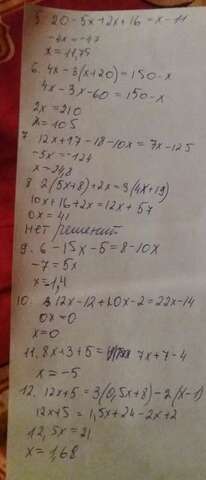 5. 20-5x+2x+16=x-11
-4x=-47
x=11,75
6. 4x-3(x+20)=150-x
4x-3x-60=150-x
2x=210
x=105
7. 12x+17-18-10x=7x-125
-5x=-124
x=24,8
8. 2(5x+8)+2x=3(4x+19)
10x+16+2x=12x+57
0x=41
нет решений
9. 6-15x-5=8-10x
-7=5x
x=-1,4
10. 12x-12+10x-2=22x-14
0x=0
x=0
11. 8x+3+5=7x+7-4
x=-5
12. 12x+5=3(0,5x+8)-2(x-1)
12x+5=1,5x+24-2x+2
12,5x=21
x=1,68